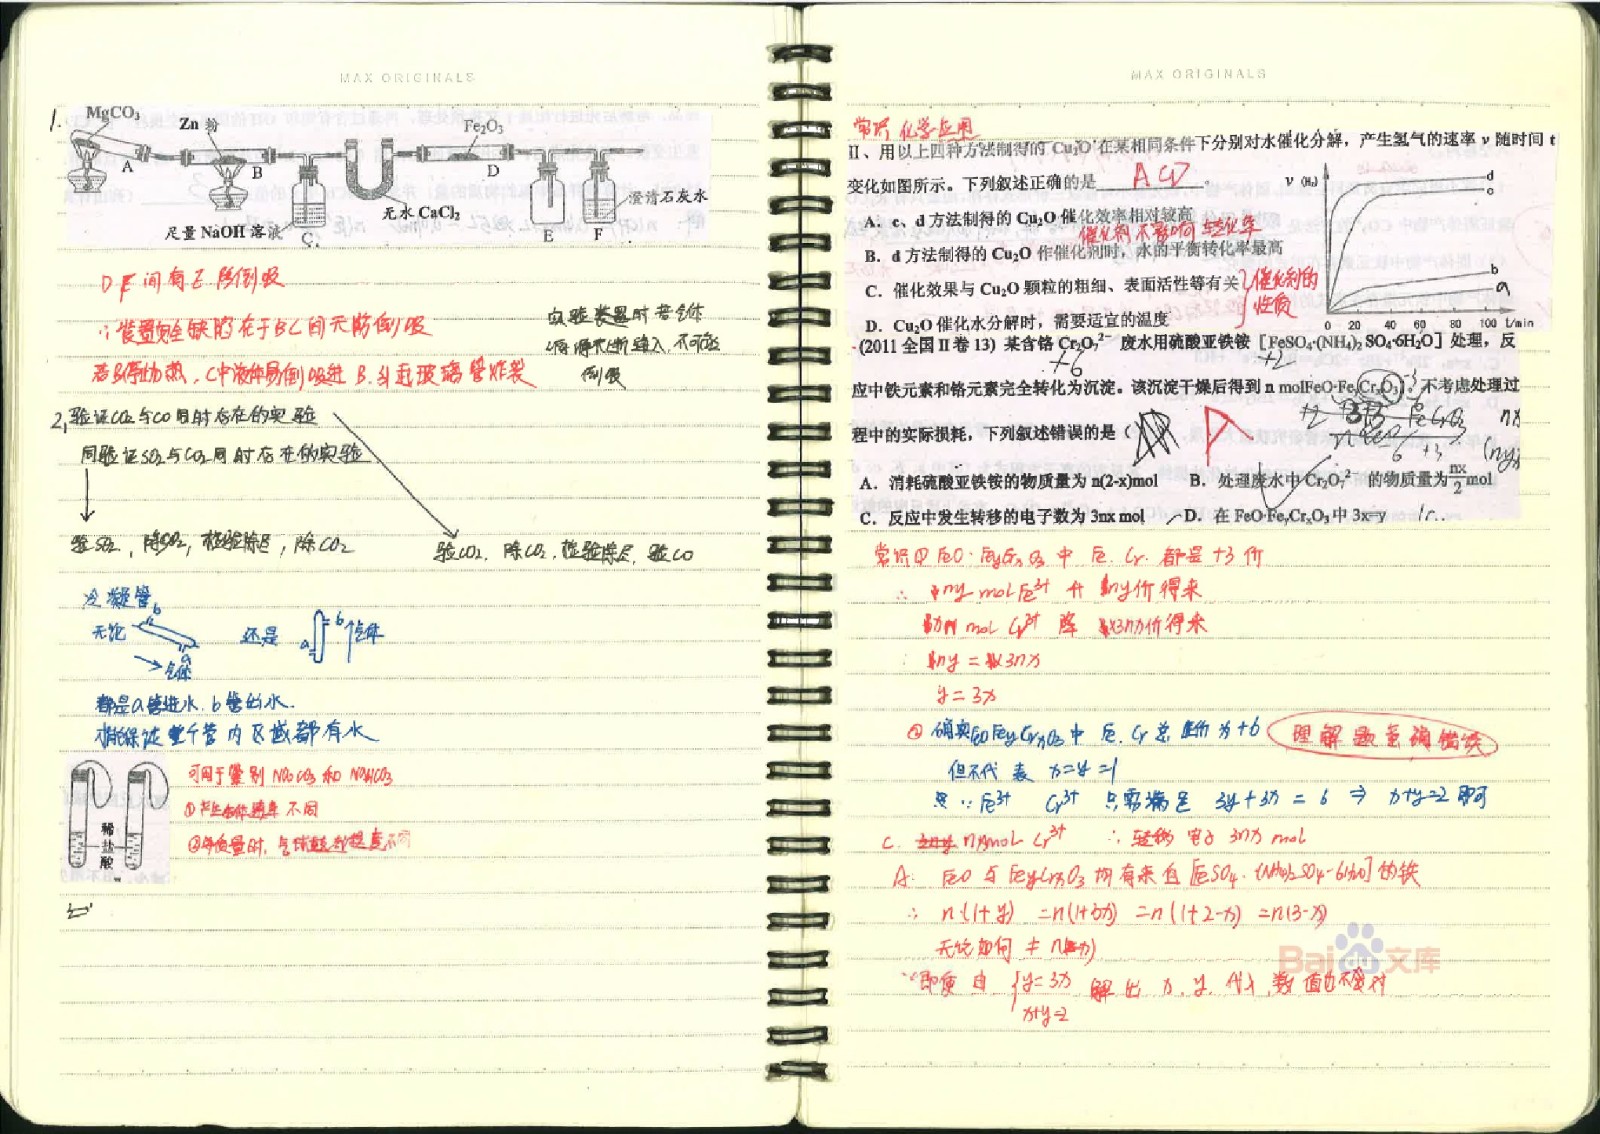 MAX ORIGINALS
1.
MgCO₃
Zn 粉
Fe₂O₃
A
B
D
无水 CaCl₂
澄清石灰水
足量 NaOH 溶液
C
E
F
D F 间有 E 防倒吸
∴装置安全缺陷在于BC间无防倒吸
若B停加热，C中液体易倒吸进B.引起玻璃管炸裂
实验装置时若气体
源源不断通入，不可能
倒吸
2, 验证CO₂与CO同时存在的实验
同验证SO₂与CO₂同时存在的实验
验SO₂，除SO₂，检验除尽，除CO₂
验CO₂. 除CO₂. 检验除尽. 验CO
冷凝管
b
无论
a
气体
还是
a
b
气体
都是a管进水. b管出水.
才能保证整个管内区域都有水
可用于鉴别 Na₂CO₃ 和 NaHCO₃
①产生气体速率不同
稀
盐
酸
MAX ORIGINALS
常识 化学应用
II、用以上四种方法制得的 Cu₂O 在某相同条件下分别对水催化分解，产生氢气的速率 v 随时间 t
变化如图所示。下列叙述正确的是 ACD
A．c、d 方法制得的 Cu₂O 催化效率相对较高
催化剂不影响转化率
B．d 方法制得的 Cu₂O 作催化剂时，水的平衡转化率最高
C．催化效果与 Cu₂O 颗粒的粗细、表面活性等有关
D．Cu₂O 催化水分解时，需要适宜的温度
催化剂的
性质
v (H₂)
d
c
b
a
0 20 40 60 80 100 t/min
(2011 全国 II 卷 13) 某含铬 Cr₂O₇²⁻ 废水用硫酸亚铁铵［FeSO₄·(NH₄)₂SO₄·6H₂O］处理，反
+6
+2
应中铁元素和铬元素完全转化为沉淀。该沉淀干燥后得到 n molFeO·FeyCrxO₃。不考虑处理过
程中的实际损耗，下列叙述错误的是（
A．消耗硫酸亚铁铵的物质量为 n(2-x)mol B．处理废水中 Cr₂O₇²⁻ 的物质量为 nx/2 mol
C．反应中发生转移的电子数为 3nx mol D．在 FeO·FeyCrxO₃ 中 3x=y
常识① FeO·FeyCrxO₃ 中 Fe. Cr. 都是 +3 价
∴ ny mol Fe³⁺ 升 ny价得来
nx mol Cr³⁺ 降 3nx价得来
∴ ny = 3nx
y = 3x
② 确实FeO·FeyCrxO₃ 中 Fe. Cr 总 价为 +6
理解题意确错误
但不代表 x=y=1
只∵ Fe³⁺ Cr³⁺ 只需满足 3y+3x = 6 ⇒ x+y=2 即可
C. nxmol Cr³⁺ ∴ 转移电子 3nx mol
A: FeO 与 FeyCrxO₃ 均有来自 [FeSO₄·(NH₄)₂SO₄·6H₂O] 的铁
∴ n·(1+y) =n(1+3x) =n(1+2-x) =n(3-x)
无论如何 ≠ n(2-x)
∵即使由 { y=3x 解出 x. y. 代入, 数值也不会对
x+y=2
Baidu文库